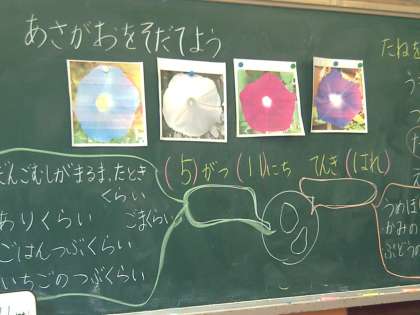 あさがおをそだてよう
たねを
(5)がつ(11)にち てんき(はれ)
だんごむしがまるまったとき
くらい
ありくらい
ごまくらい
ごはんつぶくらい
いちごのつぶくらい
うめぼ
かみの
ぶどうの